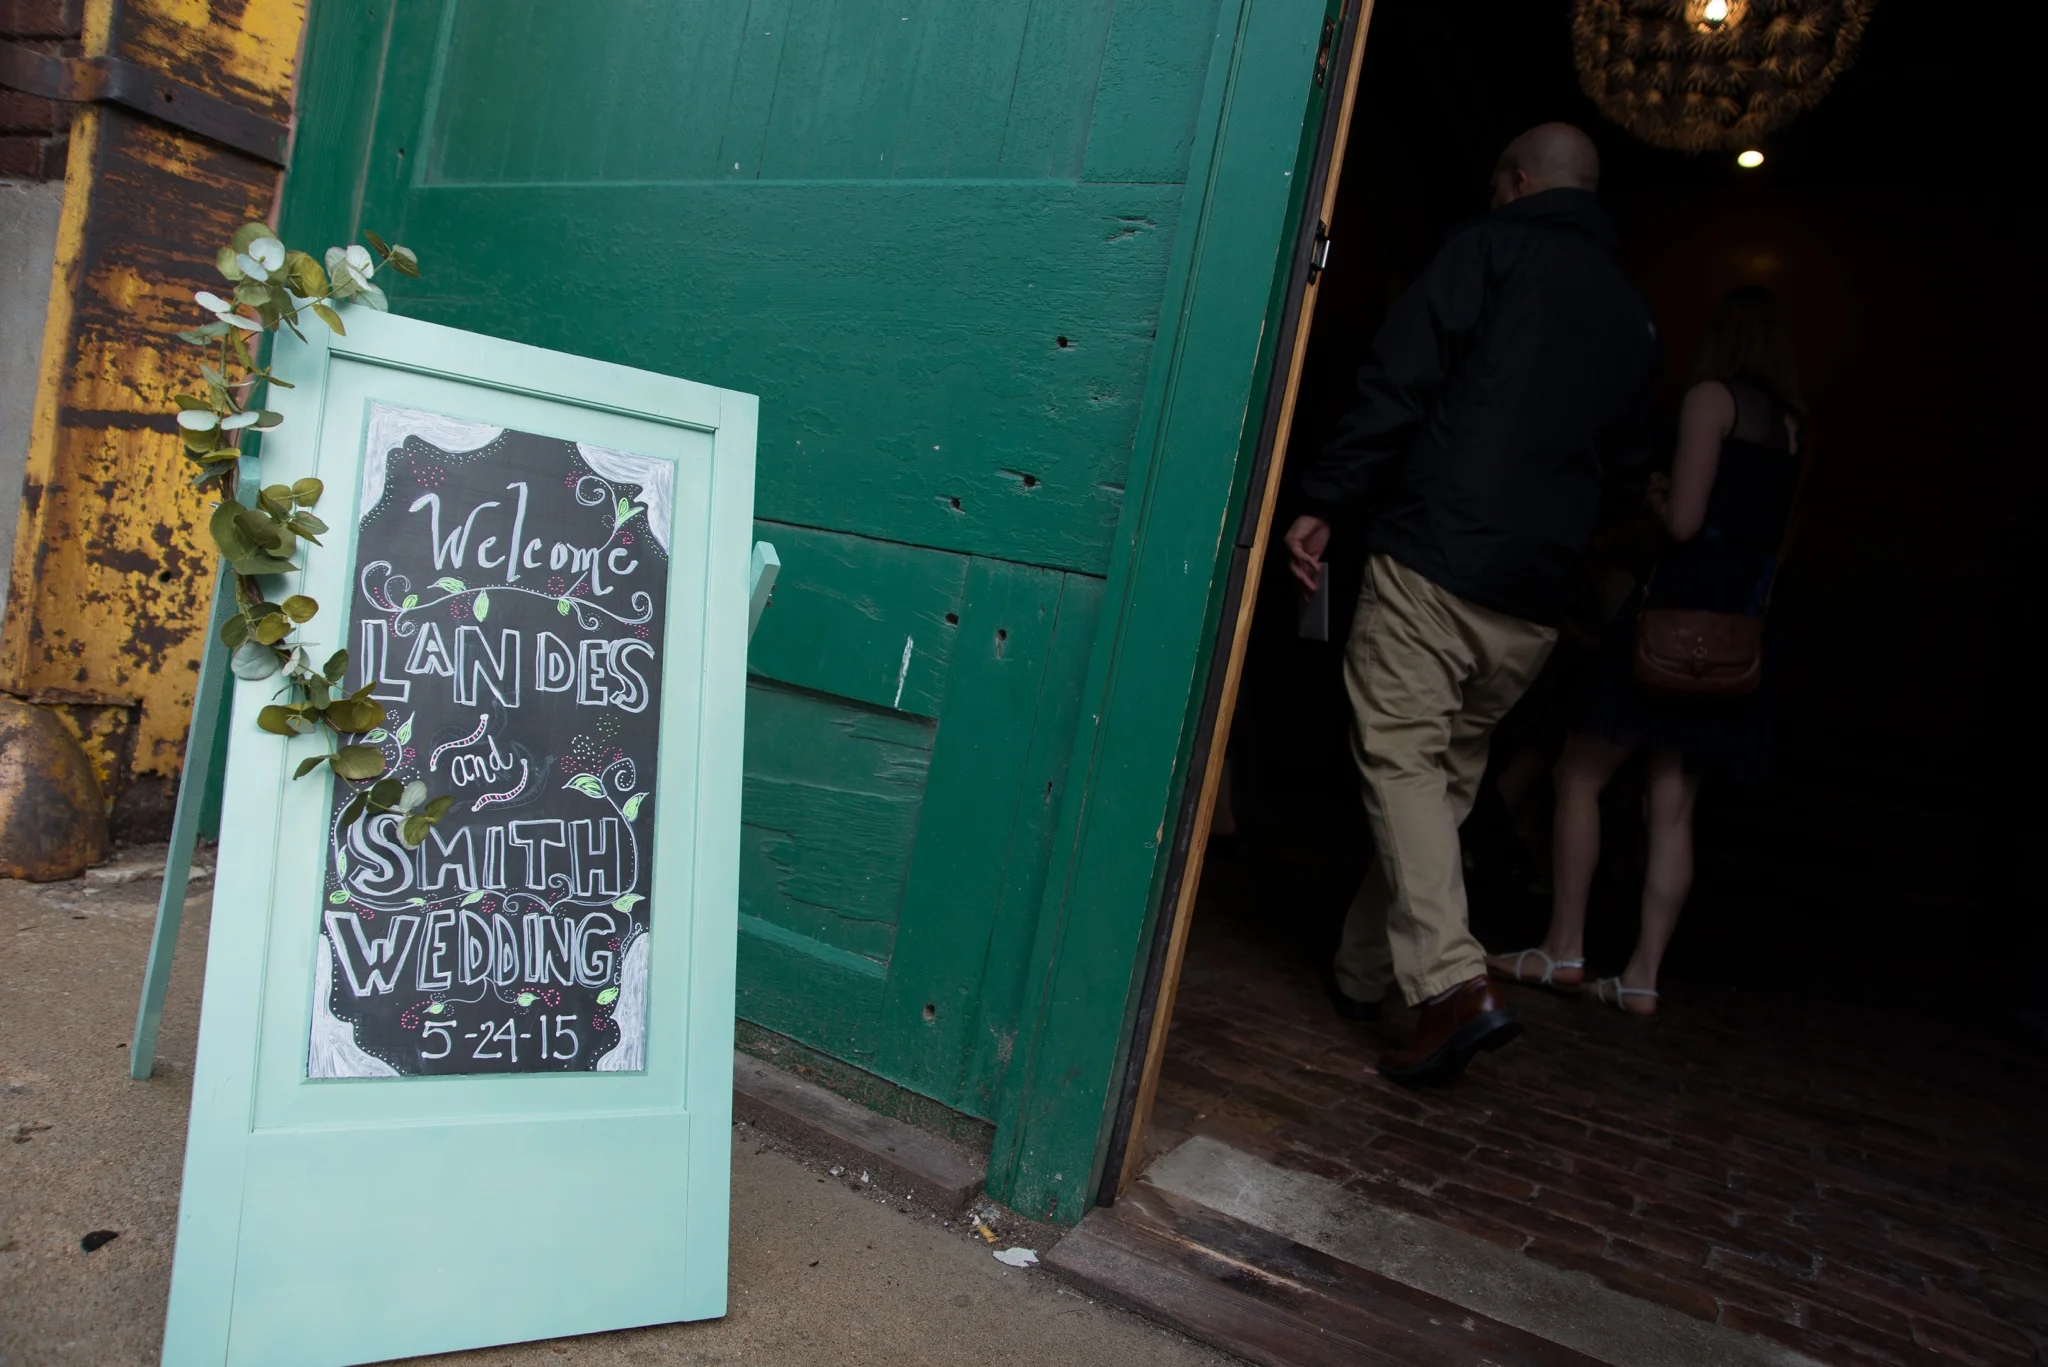 Welcome
LANDES
and
SMITH
WEDDING
5-24-15